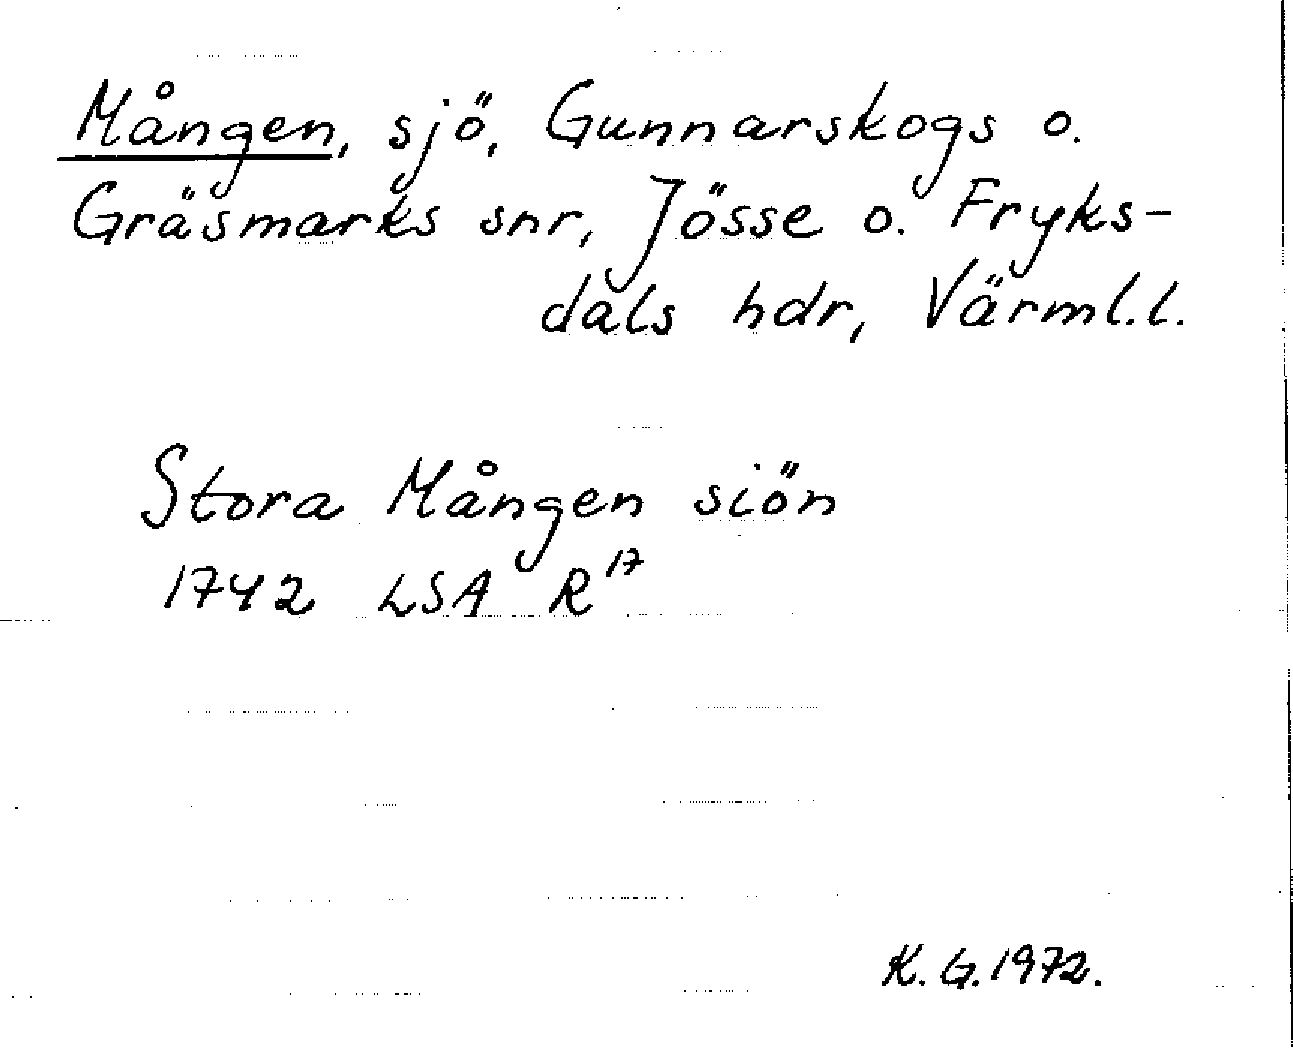 Mången, sjö, Gunnarskogs o.
Gräsmarks snr, Jösse o. Fryks-
dals hdr, Värml.l.
Stora Mången siön
1742 LSA R 17
K. G. 1972.